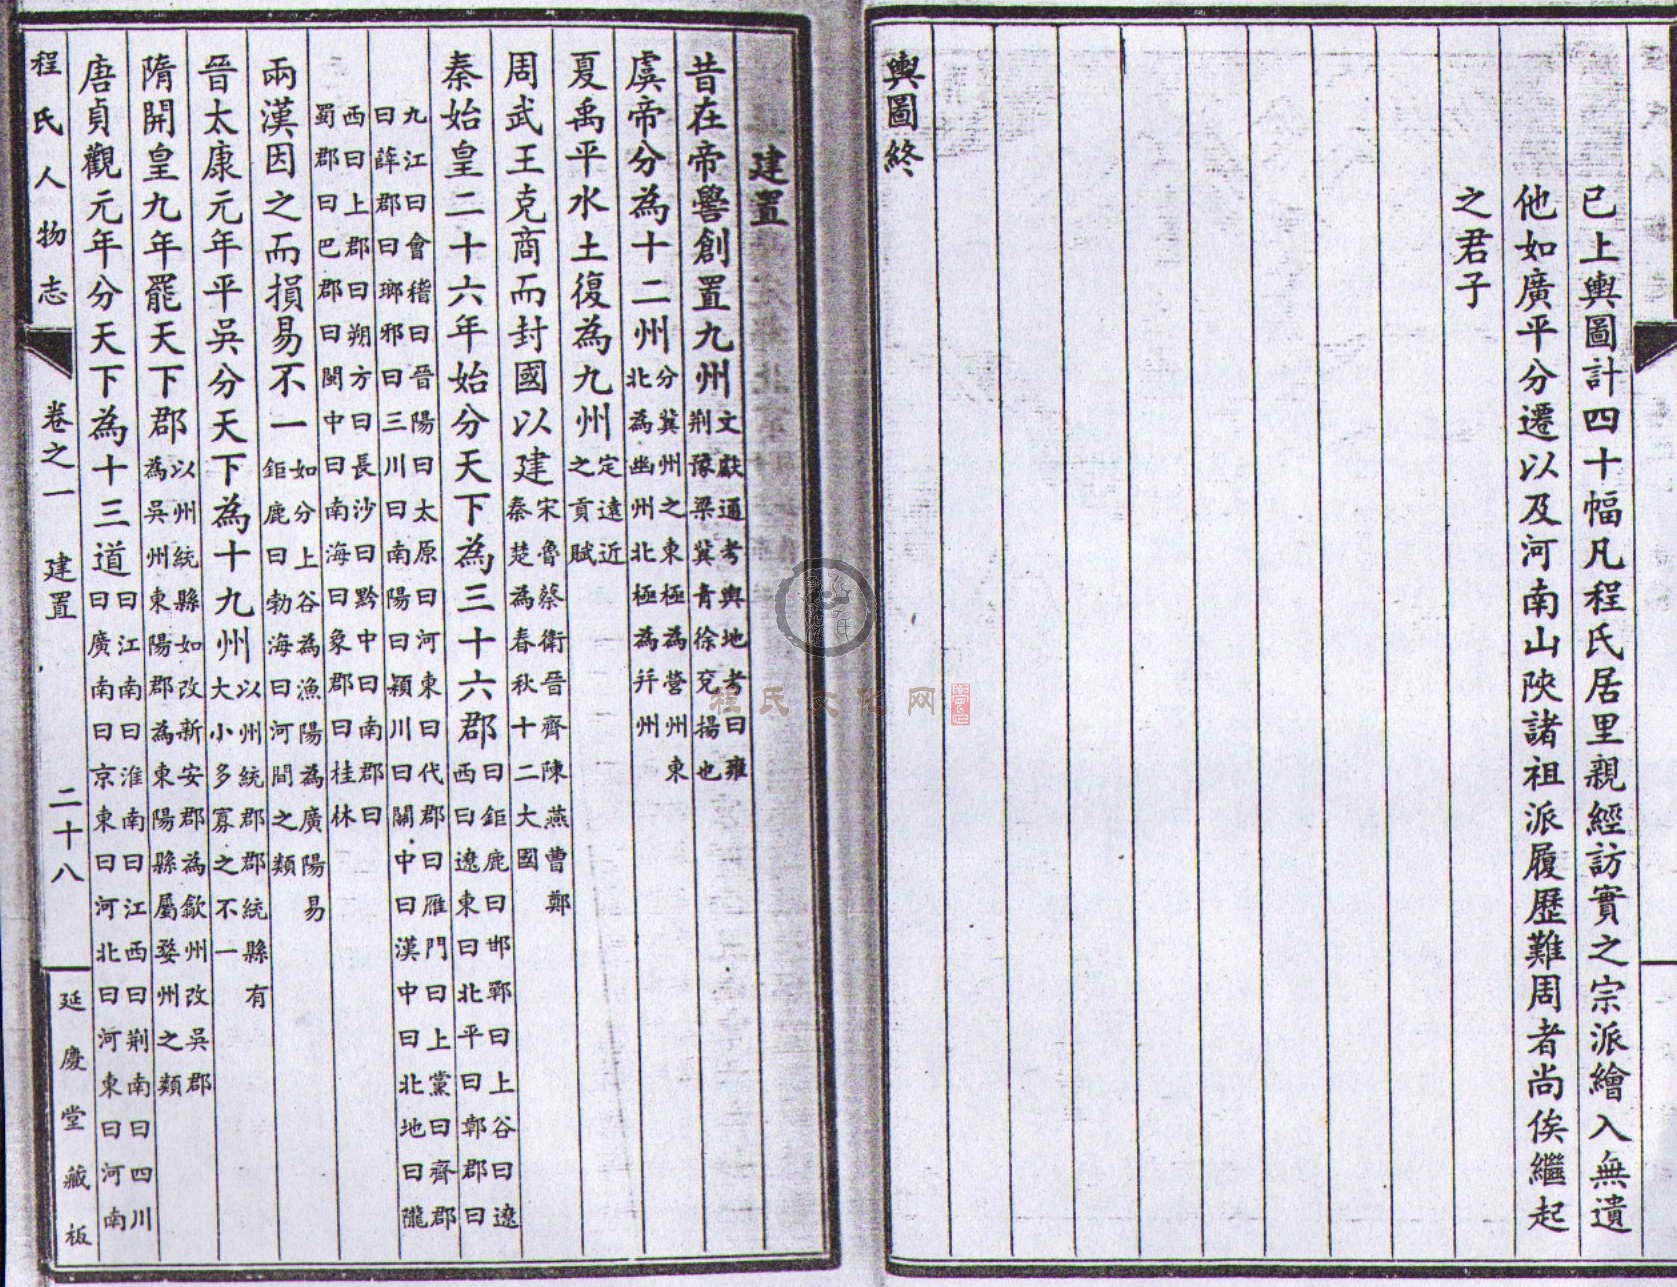 已上輿圖計四十幅凡程氏居里親經訪實之宗派繪入無遺
他如廣平分遷以及河南山陝諸祖派履歷難周者尚俟繼起
之君子
輿圖終
建置
昔在帝嚳創置九州文獻通考輿地考曰雍
荆豫梁冀青徐兗揚也
虞帝分為十二州分冀州之東極為營州東
北為幽州北極為幷州
夏禹平水土復為九州定遠近
之貢賦
周武王克商而封國以建宋魯蔡衛晉齊陳燕曹鄭
秦楚為春秋十二大國
秦始皇二十六年始分天下為三十六郡曰鉅鹿曰邯鄲曰上谷曰遼
西曰遼東曰北平曰鄣郡曰
九江曰會稽曰晉陽曰太原曰河東曰代郡曰雁門曰上黨曰齊郡
曰薛郡曰瑯邪曰三川曰南陽曰潁川曰關中曰漢中曰北地曰隴
西曰上郡曰朔方曰長沙曰黔中曰南郡曰
蜀郡曰巴郡曰閩中曰南海曰象郡曰桂林
兩漢因之而損易不一如分上谷為漁陽為廣陽易
鉅鹿曰勃海曰河間之類
晉太康元年平吳分天下為十九州以州統郡郡統縣有
大小多寡之不一
隋開皇九年罷天下郡以州統縣如改新安郡為歙州改吳郡
為吳州東陽郡為東陽縣屬婺州之類
唐貞觀元年分天下為十三道曰江南曰淮南曰江西曰荆南曰四川
曰廣南曰京東曰河北曰河東曰河南
程氏人物志
卷之一
建置
二十八
延慶堂藏板
程氏文化网